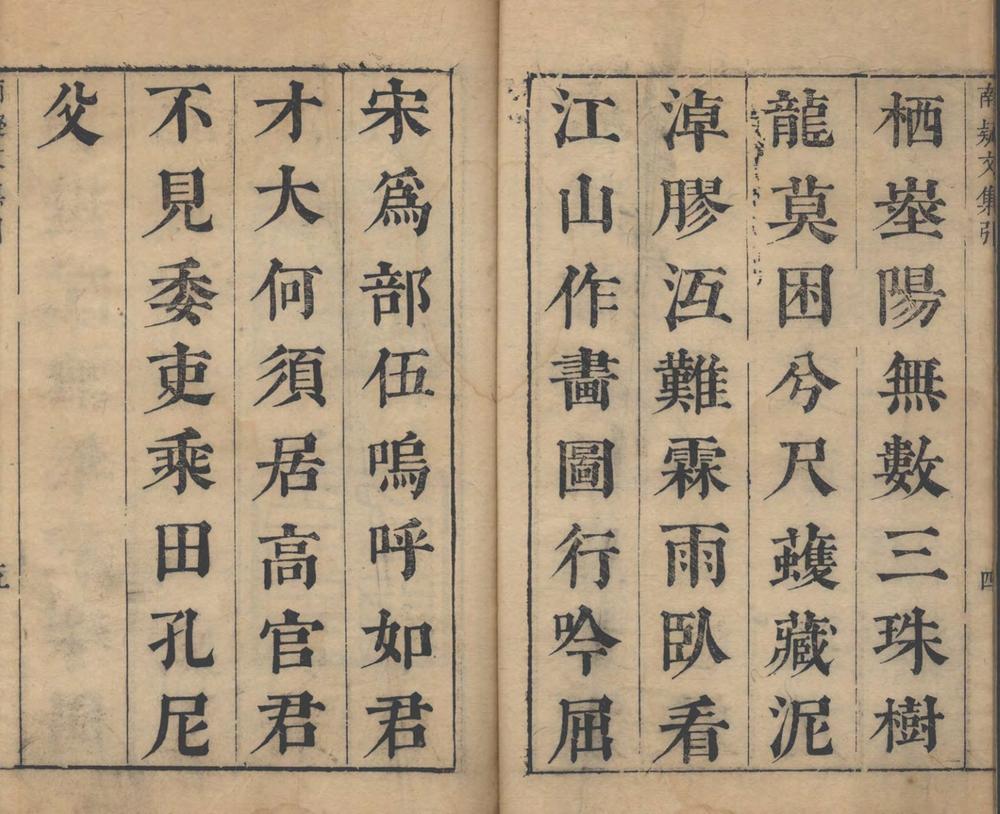 南疑文集引
四
栖峚陽無數三珠樹
龍莫困兮尺蠖藏泥
淖膠沍難霖雨臥看
江山作畫圖行吟屈
宋爲部伍嗚呼如君
才大何須居高官君
不見委吏乘田孔尼
父